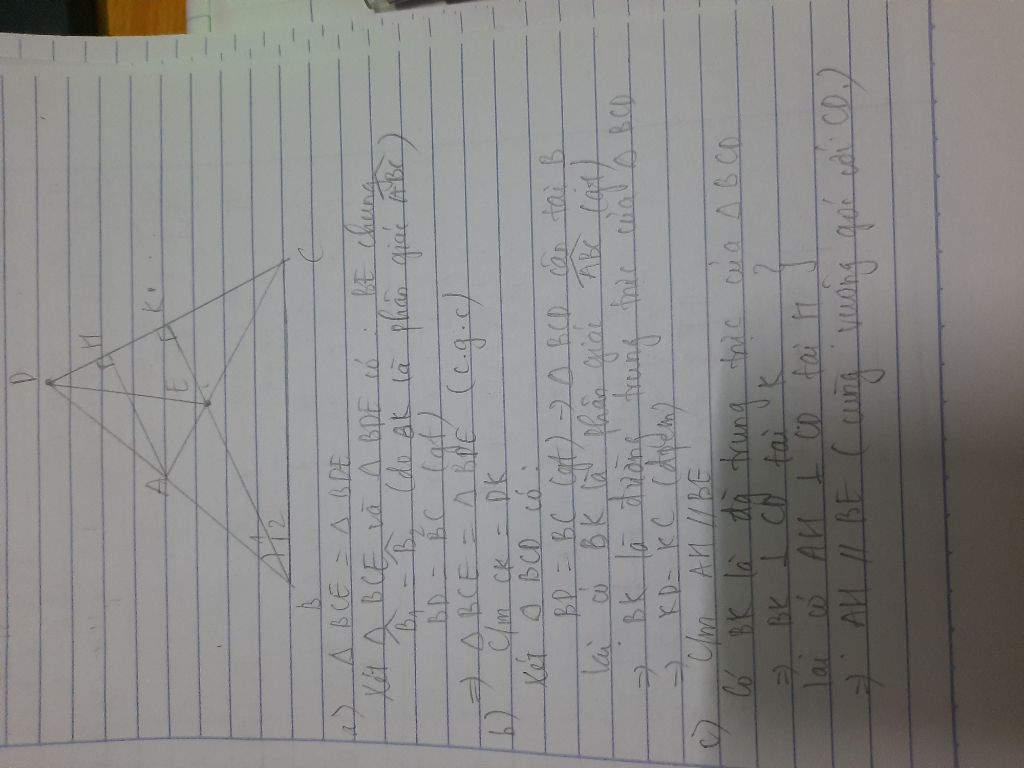 D
H
A
K
E
1
2
B
C
a) Δ BCE = Δ BDE
Xét Δ BCE và Δ BDE có BE chung
B̂₁ = B̂₂ (do BK là phân giác ABC)
BD = BC (gt)
=> Δ BCE = Δ BDE (c.g.c)
b) C/m CK = DK
Xét Δ BCD có:
BD = BC (gt) -> Δ BCD cân tại B
Lại có BK là phân giác ABC (gt)
=> BK là đường trung trực của Δ BCD
=> KD = KC (đpcm)
c) C/m AH // BE
Có BK là đg trung trực của Δ BCD
=> BK ⊥ CD tại K
Lại có AH ⊥ CD tại H
=> AH // BE (cùng vuông góc với CD)